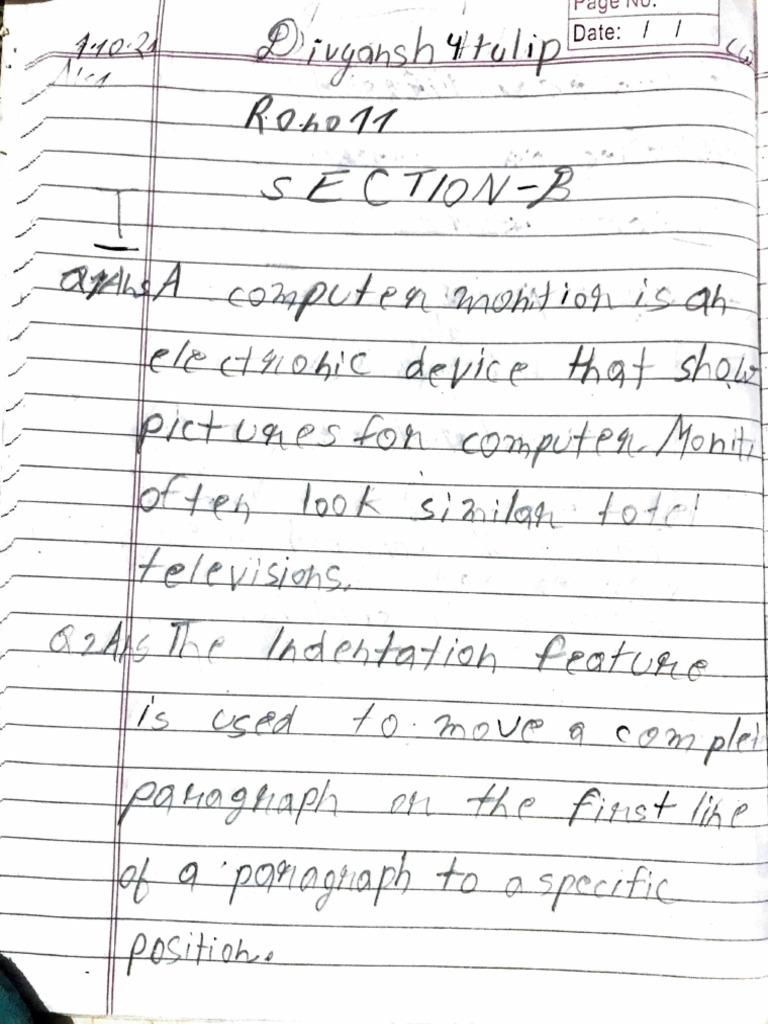 Page No.
Date: / /
1.10.21 Divyansh 4 tulip
R.o no 11
SECTION-B
I
Q1Ans A computer monitior is an
electronic device that show
pictures for computer. Moniti
often look similar to
televisions.
Q2Ans The Indentation feature
is used to move a complet
paragraph or the first line
of a paragraph to a specific
position.